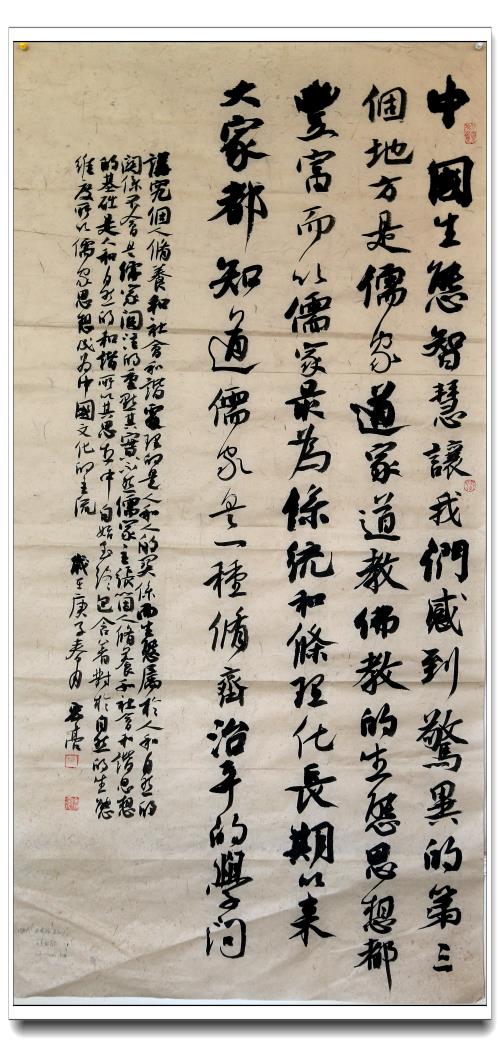 中國生態智慧讓我們感到驚異的第三
個地方是儒家道家道教佛教的生態思想都
豐富而以儒家最為係統和條理化長期以來
大家都知道儒家是一種脩齊治平的學問
講究個人脩養和社會和諧處理的是人和人的関係而生態属於人和自然的
関係不會是儒家関注的重點其實不然儒家主張個人脩養和社會和諧思想
的基础是人和自然的和諧所以其思想中自始至终包含着對於自然的生態
維度所以儒家思想成為中國文化的主流
歲在庚子春月